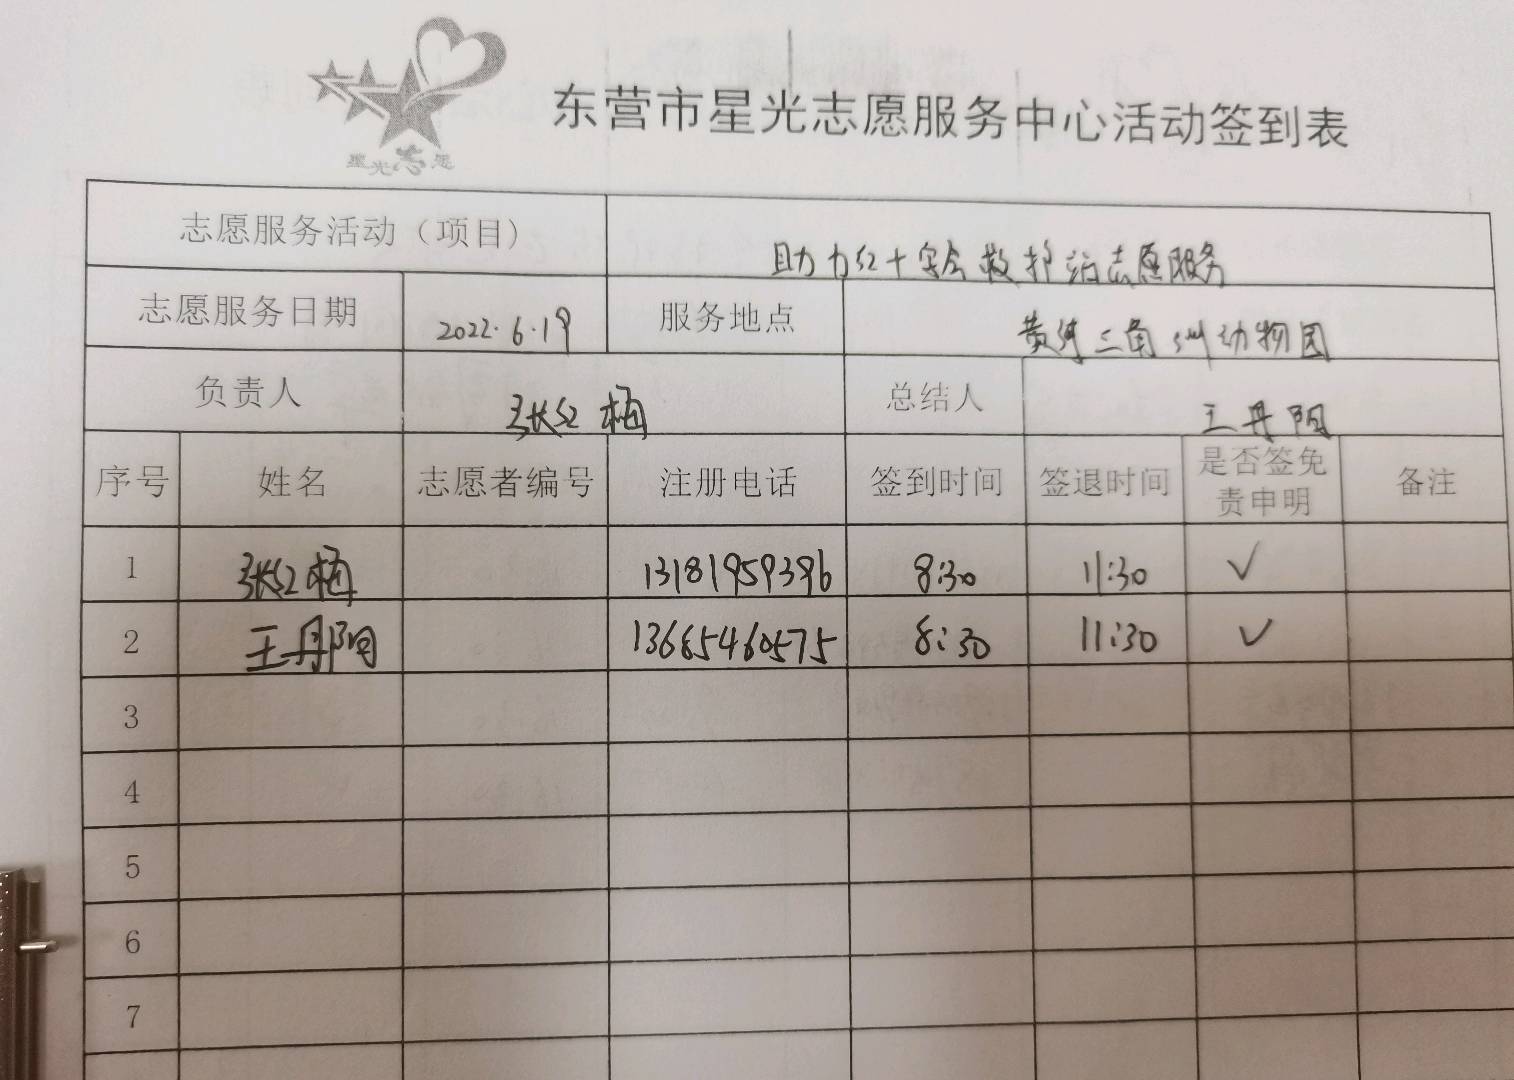 星光志愿
东营市星光志愿服务中心活动签到表
志愿服务活动（项目） 助力红十字会救护站志愿服务
志愿服务日期 2022.6.19 服务地点 黄河三角洲动物园
负责人 张红梅 总结人 王丹阳
序号 姓名 志愿者编号 注册电话 签到时间 签退时间 是否签免责申明 备注
1 张红梅 13181959396 8:30 11:30 ✓
2 王丹阳 13665460575 8:30 11:30 ✓
3
4
5
6
7